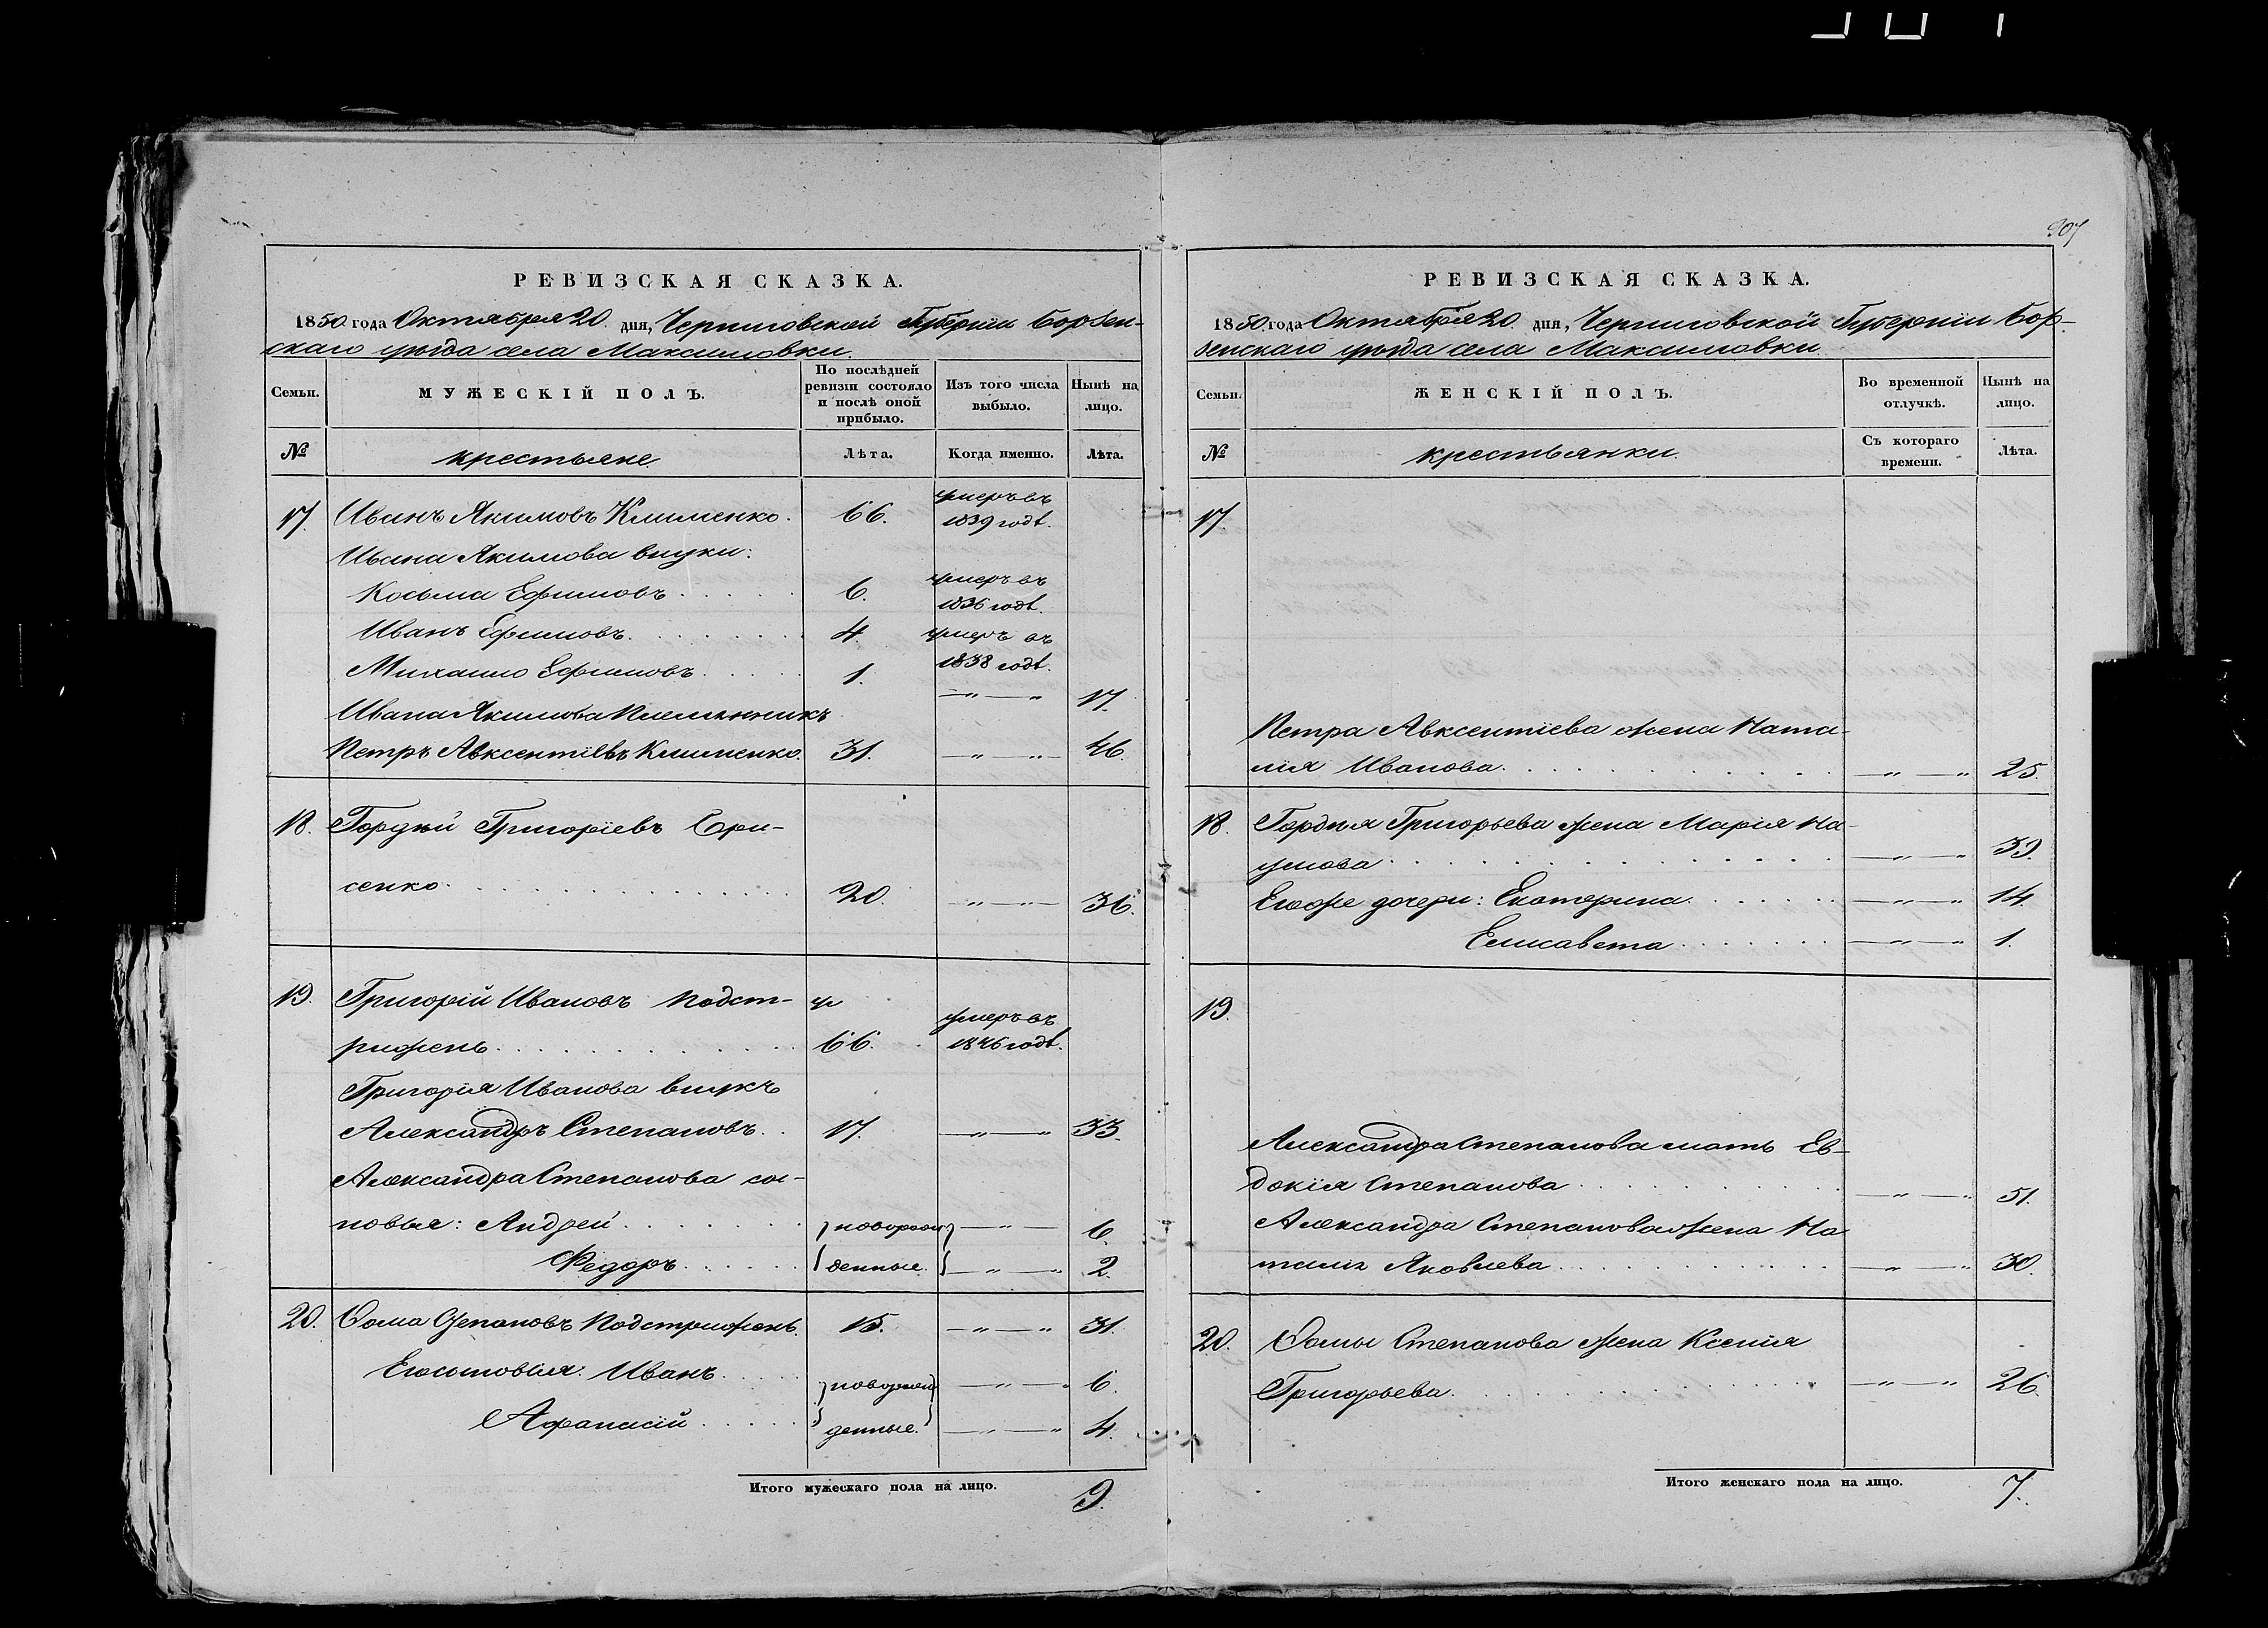 307
РЕВИЗСКАЯ СКАЗКА.
1850 года Октября 20. дня, Черниговской Губерніи Борзен-
скаго уѣзда села Максимовки.
Семьи.
МУЖЕСКІЙ ПОЛЪ.
По послѣдней ревизіи состояло и послѣ оной прибыло.
Изъ того числа выбыло.
Нынѣ на лицо.
№
крестьяне.
Лѣта.
Когда именно.
Лѣта.
17. Иванъ Якимовъ Клименко. 66. умеръ въ 1839 годѣ.
Ивана Якимова внуки:
Косьма Ефимовъ. 6. умеръ въ 1836 годѣ.
Иванъ Ефимовъ. 4. умеръ въ 1838 годѣ.
Михаило Ефимовъ. 1. —„—„ 17.
Ивана Якимова племянникъ
Петръ Авксентіевъ Клименко. 31. —„—„— 46.
18. Гордѣй Григоріевъ Бри-
сенко. 20. —„—„— 36.
19. Григорій Ивановъ Подст- у
рижень. 66. умеръ въ 1846 годѣ.
Григорія Иванова внукъ
Александръ Степановъ. 17. —„—„ 33.
Александра Степанова сы-
новья: Андрей. новорож —„— 6.
Федоръ. денные. —„—„ 2.
20. Фома Степановъ Подстрижень. 15. —„—„ 31.
Его сыновья: Иванъ. новорож —„—„ 6.
Афанасій. денные. —„—„ 4.
Итого мужескаго пола на лицо. 9.
РЕВИЗСКАЯ СКАЗКА.
1850 года Октября 20. дня, Черниговской Губерніи Бор-
зенскаго уѣзда села Максимовки.
Семьи.
ЖЕНСКІЙ ПОЛЪ.
Во временной отлучкѣ.
Нынѣ на лицо.
№
крестьянки.
Съ котораго времени.
Лѣта.
17.
Петра Авксентіева жена Ната-
лія Иванова. —„—„ 25.
18. Гордѣя Григорьева жена Марія На-
умова. —„—„ 39.
Его же дочери: Екатерина. —„—„ 14.
Елисавета. —„—„ 1.
19.
Александра Степанова мать Ев-
докія Степанова. —„—„ 51.
Александра Степанова жена На
талія Яковлева. —„—„ 30.
20. Фомы Степанова жена Ксенія
Григорьева. —„—„ 26.
Итого женскаго пола на лицо. 7.